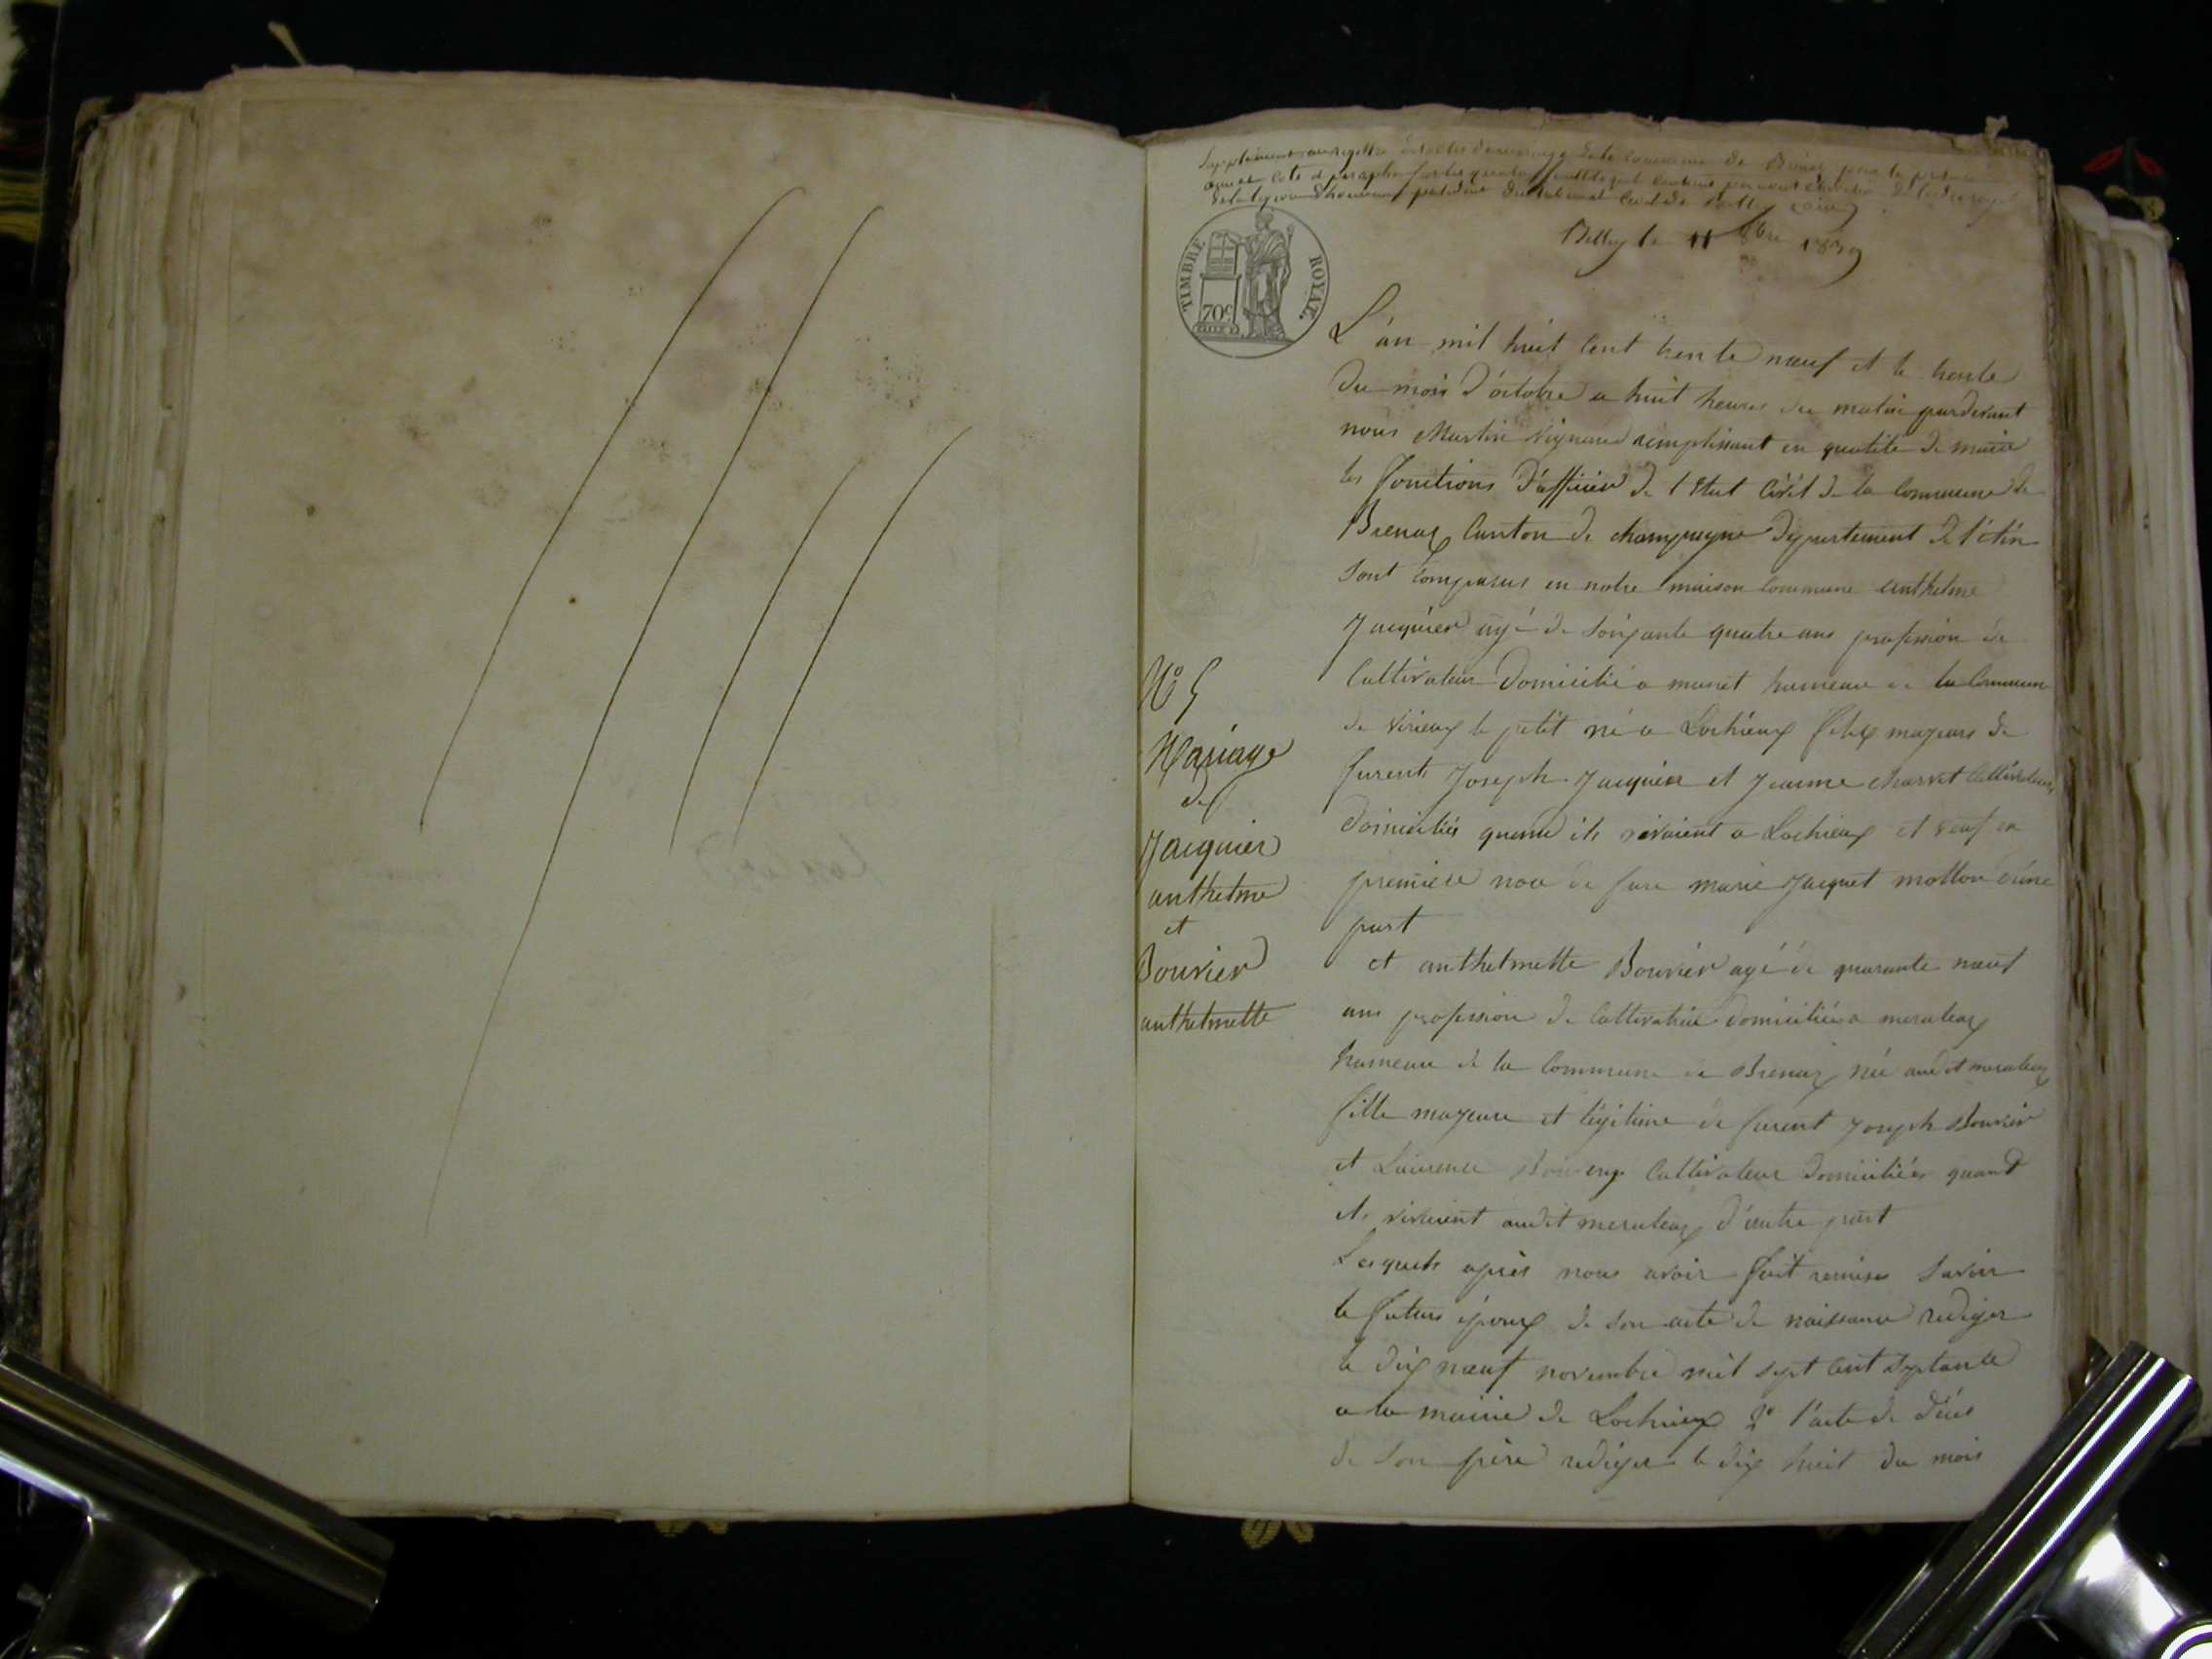 Supplément au registre des actes de mariage de la commune de Brenaz pour la présente
année coté et paraphé par
de la légion d'honneur président du tribunal civil de Belley (ain)
Belley le 11 8bre 1839
TIMBRE ROYAL.
70c
L'an mil huit cent trente neuf et le trente
du mois d'octobre a huit heures du matin pardevant
nous Martin Vignand remplissant en qualité de maire
les fonctions d'officier de l'Etat Civil de la Commune de
Brenaz Canton de champagne Departement de l'Ain
sont comparus en notre maison commune anthelme
Jacquier agé de soixante quatre ans profession de
Cultivateur domicilié a munet hameau de la Commune
de virieux le petit né a Lochieux fils majeurs de
furent Joseph Jacquier et Jeanne charvet Cultivateurs
domiciliés quand ils vivaient a Lochieux et veuf en
premiere noce de fue marie Jacquet mollon d'une
part
et anthelmette Bouvier agé de quarante neuf
ans profession de Cultivatrice domiciliée a meraleaz
hameau de la Commune de Brenaz née audit meraleaz
fille majeure et légitime de furent Joseph Bouvier
et Laurence Cultivateur domiciliés quand
ils vivaient audit meraleaz d'autre part
Lesquels après nous avoir fait remises savoir
le futurs époux de son acte de naissance rediger
le dix neuf novembre mil sept cent septante
a la mairie de Lochieux 2° l'acte de décès
de son père rediger le dix huit du mois
N° 5
Mariage
de
Jacquier
anthelme
et
Bouvier
anthelmette